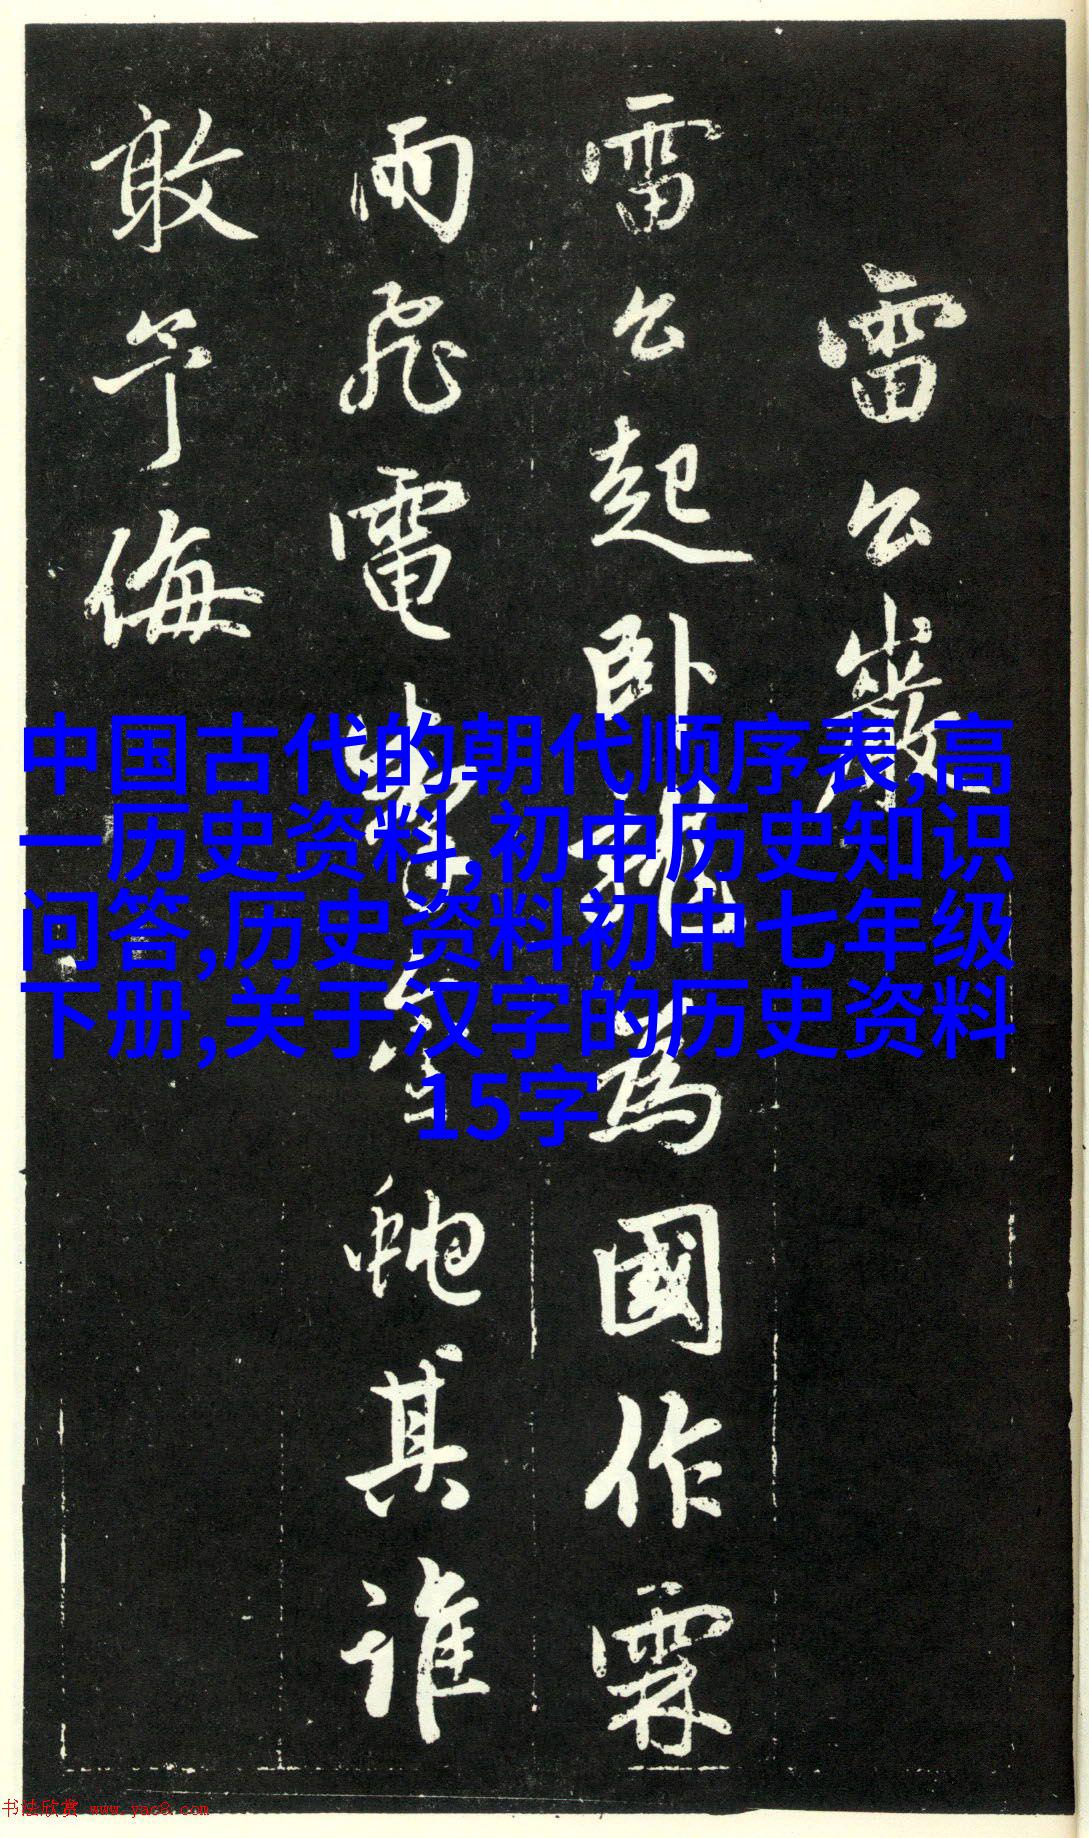 雷公巖
雷公起卧龍為國作霖
雨飛電掣金虵其誰
敢予侮
中国古代的朝代顺序表,高
一历史资料,初中历史知识
问答,历史资料初中七年级
下册,关于汉字的历史资料
15字
书法欣赏 www.yac8.com